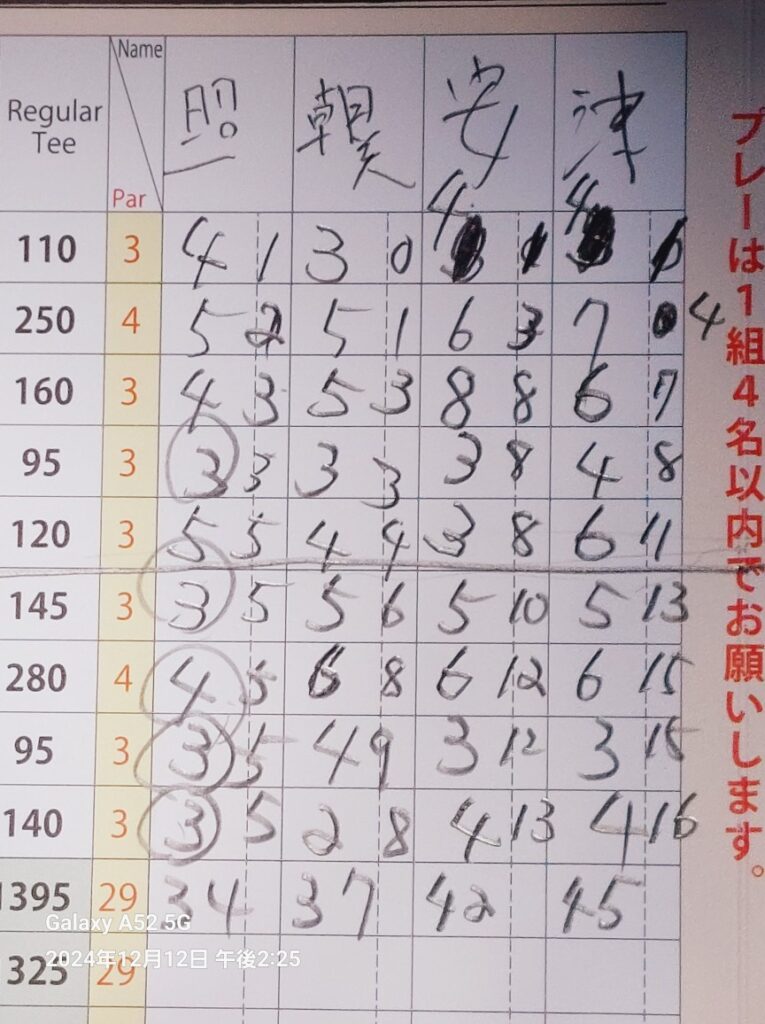 Name
Regular Tee
Par
照 安 津
110 3 4 1 3 0 4 4
250 4 5 2 5 1 6 3 7 4
160 3 4 3 5 3 8 8 6 7
95 3 3 3 3 3 3 8 4 8
120 3 5 5 4 4 3 8 6 11
145 3 3 5 5 6 5 10 5 13
280 4 4 5 6 8 6 12 6 15
95 3 3 5 4 9 3 12 3 15
140 3 3 5 2 8 4 13 4 16
1395 29 34 37 42 45
325 29
プレーは1組4名以内でお願いします。
Galaxy A52 5G
2024年12月12日 午後2:25